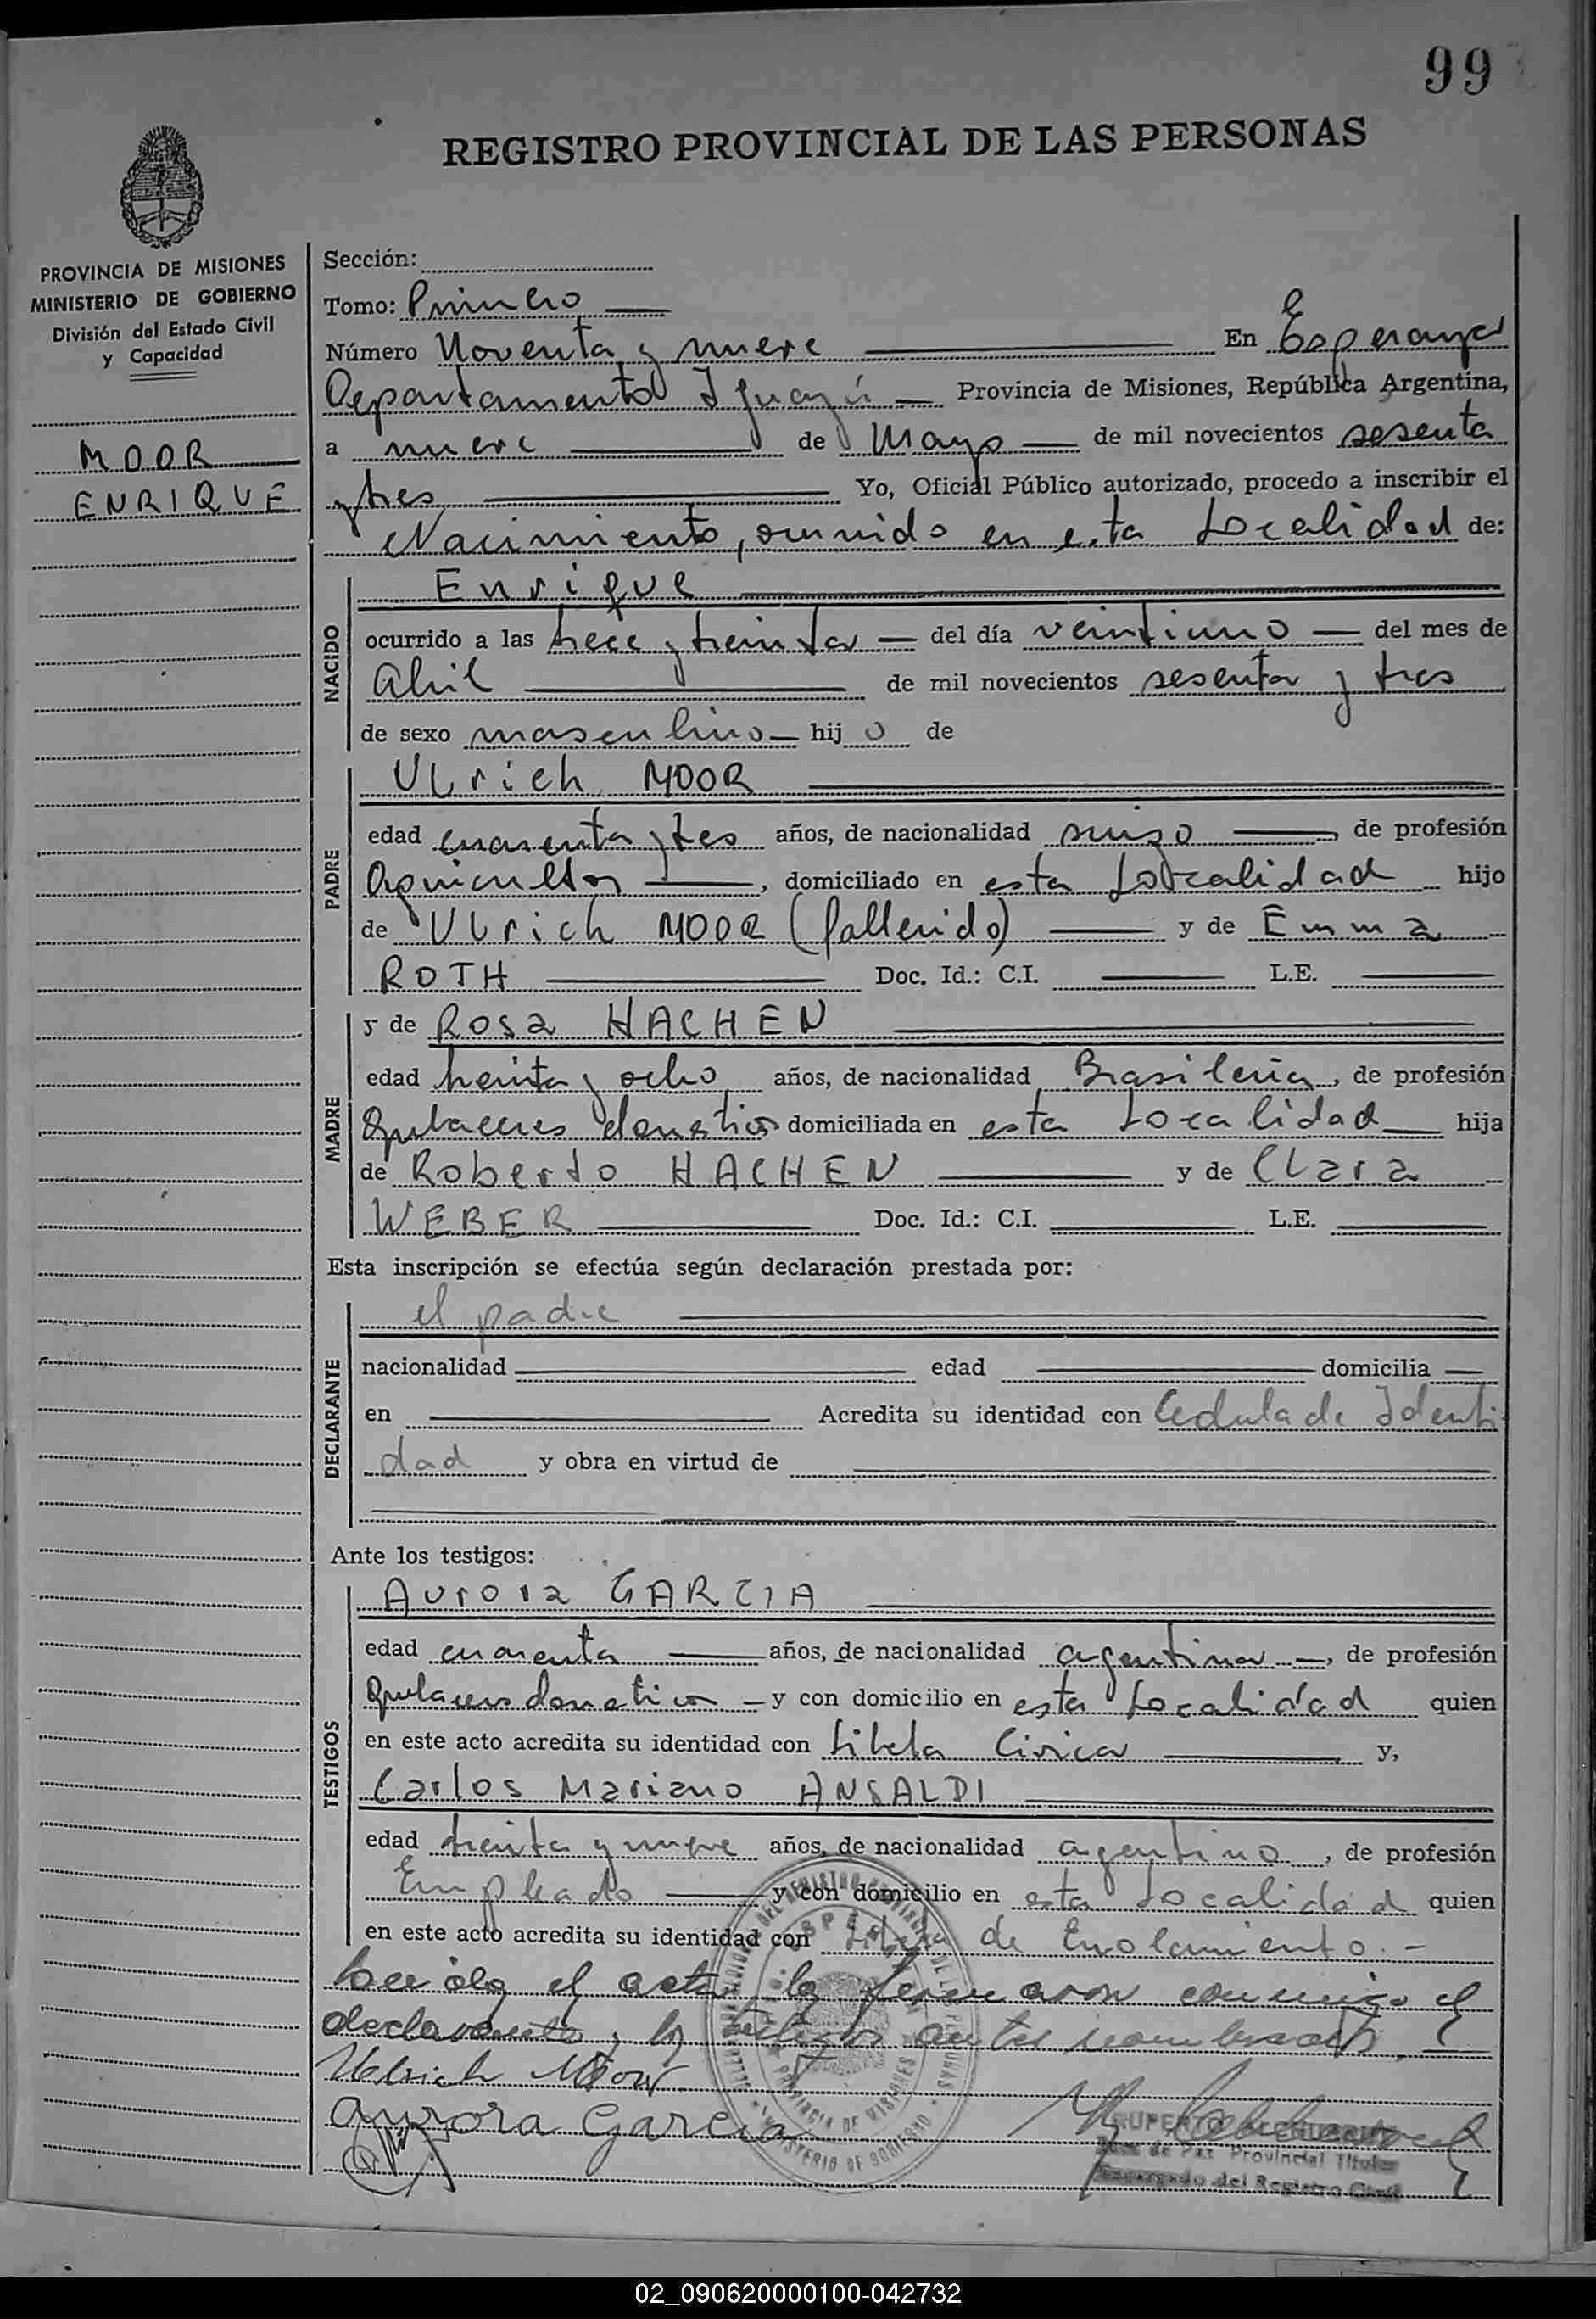 99
REGISTRO PROVINCIAL DE LAS PERSONAS
PROVINCIA DE MISIONES
MINISTERIO DE GOBIERNO
División del Estado Civil
y Capacidad
MOOR
ENRIQUE
Sección:
Tomo: Primero
Número Noventa y nueve En Esperanza
Departamento Iguazú Provincia de Misiones, República Argentina,
a nueve de Mayo de mil novecientos sesenta
y tres Yo, Oficial Público autorizado, procedo a inscribir el
Nacimiento, ocurrido en esta Localidad de:
NACIDO
Enrique
ocurrido a las trece y treinta del día veintiuno del mes de
Abril de mil novecientos sesenta y tres
de sexo masculino hijo de
PADRE
Ulrich MOOR
edad cuarenta y tres años, de nacionalidad suizo, de profesión
Agricultor, domiciliado en esta Localidad hijo
de Ulrich MOOR (fallecido) y de Emma
ROTH Doc. Id.: C.I. L.E.
MADRE
y de Rosa HACHEN
edad treinta y ocho años, de nacionalidad Brasileña, de profesión
Quehaceres domesticos domiciliada en esta Localidad hija
de Roberto HACHEN y de Clara
WEBER Doc. Id.: C.I. L.E.
Esta inscripción se efectúa según declaración prestada por:
DECLARANTE
el padre
nacionalidad edad domicilia
en Acredita su identidad con Cedula de Identi
dad y obra en virtud de
Ante los testigos:
TESTIGOS
Aurora GARCIA
edad cuarenta años, de nacionalidad argentina, de profesión
Quehaceres domesticos y con domicilio en esta Localidad quien
en este acto acredita su identidad con Libreta Civica y,
Carlos Mariano ANSALDI
edad treinta y nueve años, de nacionalidad argentino, de profesión
Empleado y con domicilio en esta Localidad quien
en este acto acredita su identidad con Libreta de Enrolamiento.-
Leída el acta, la firmaron conmigo el
declarante y los testigos antes nombrados.
Ulrich Moor
Aurora Garcia
Juez de Paz Provincial Titular
Encargado del Registro Civil
PROVINCIA DE MISIONES
MINISTERIO DE GOBIERNO
02_090620000100-042732